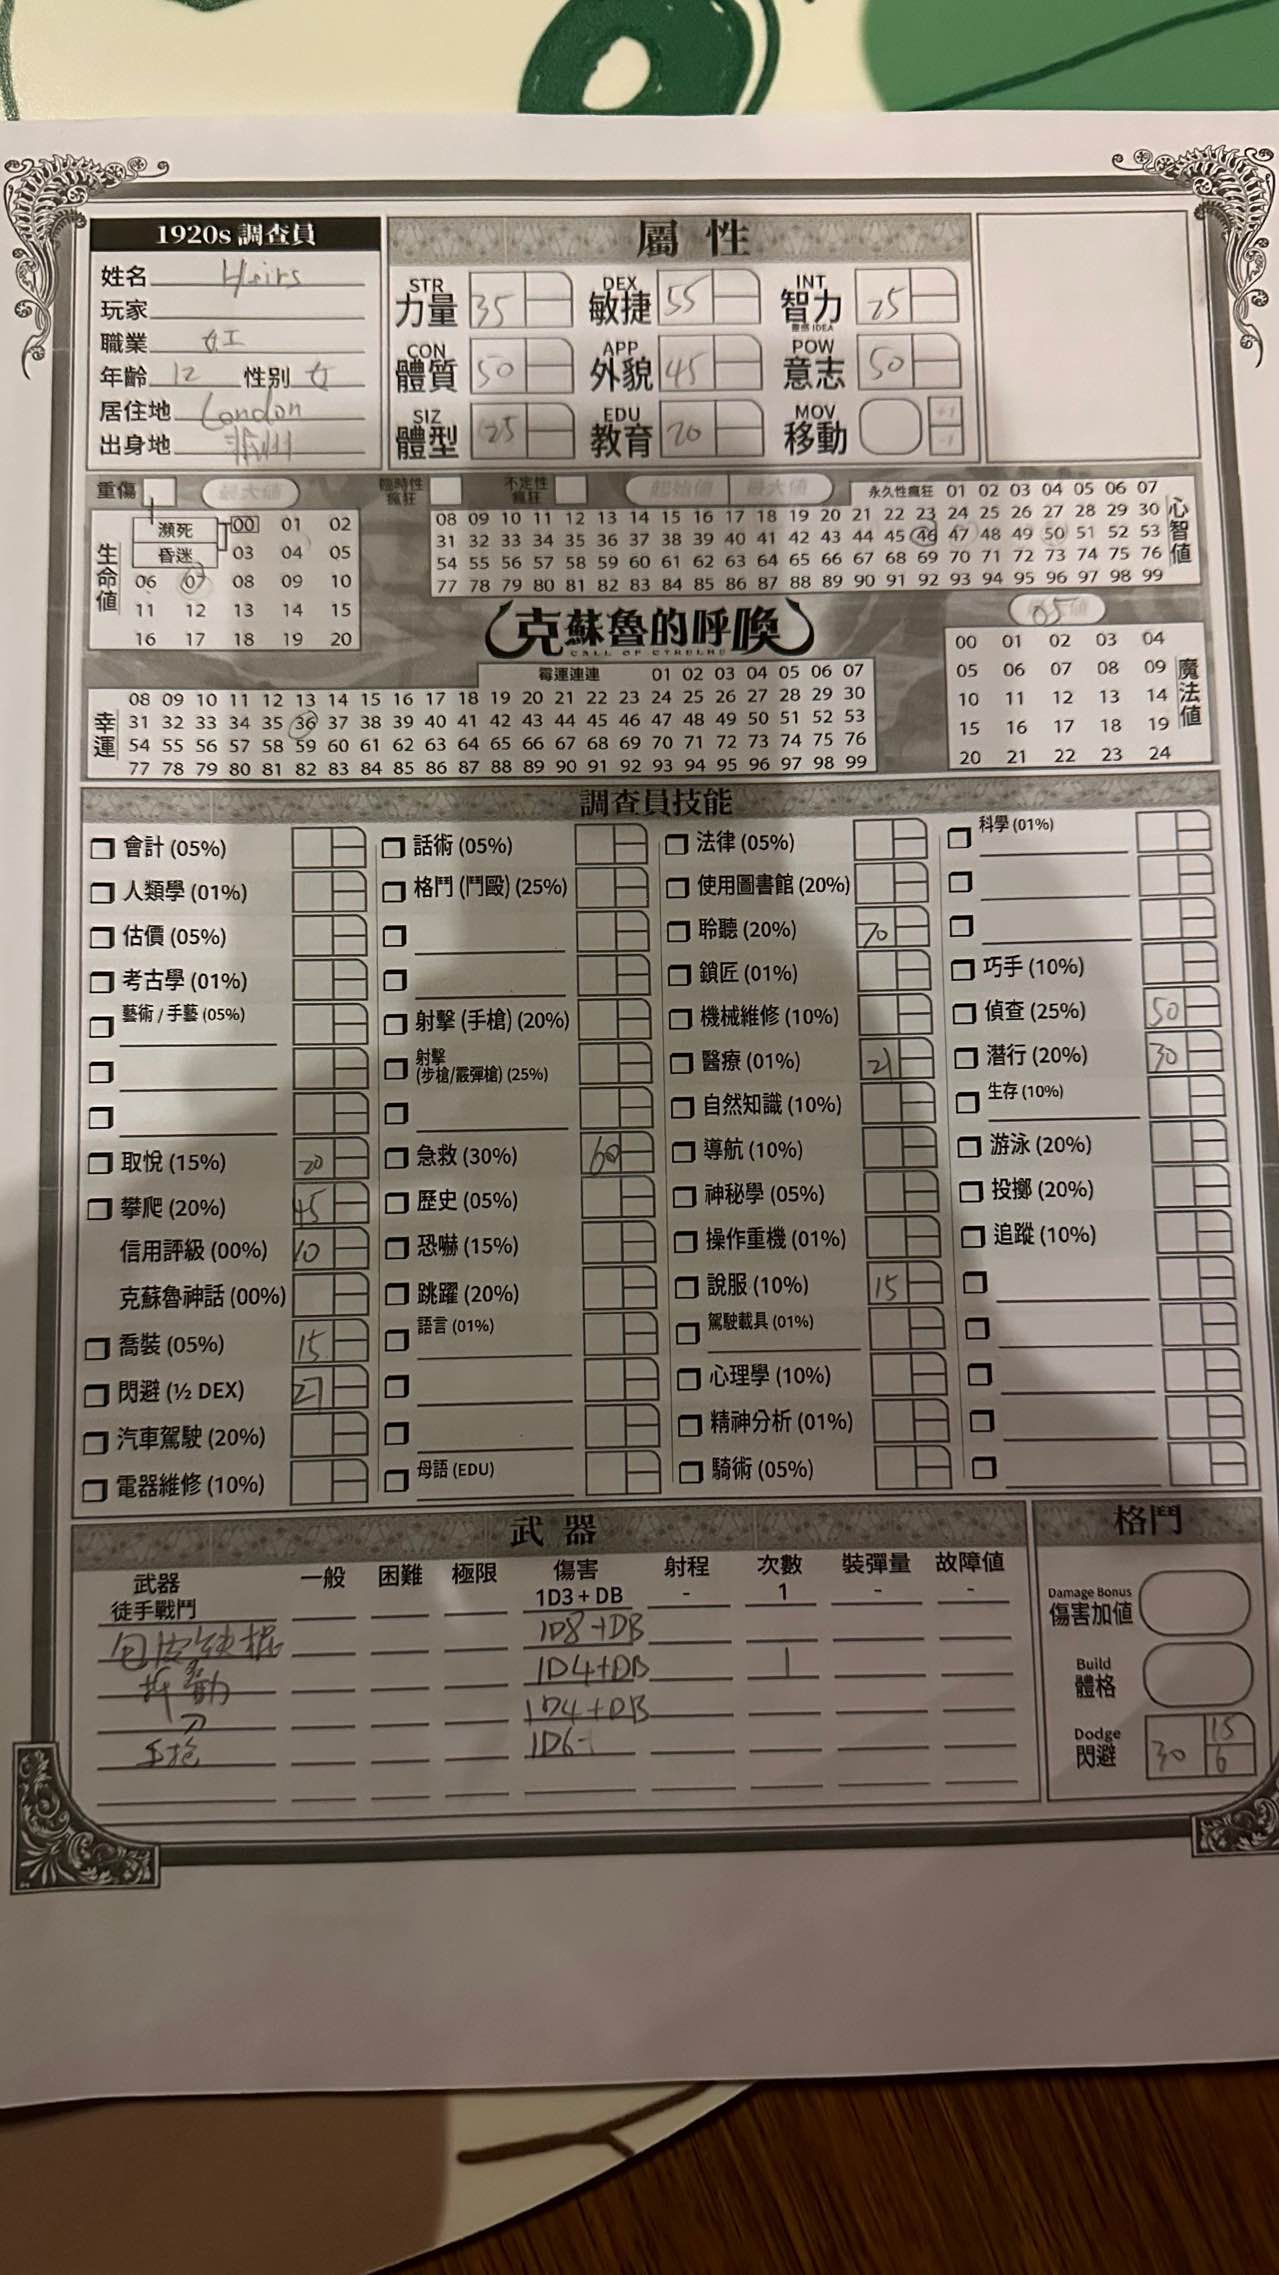 1920s 調查員
姓名 Heirs
玩家
職業 女工
年齡 12 性別 女
居住地 London
出身地 非洲
屬性
STR 力量 35
DEX 敏捷 55
INT 智力 靈感 IDEA 75
CON 體質 50
APP 外貌 45
POW 意志 50
SIZ 體型 25
EDU 教育 20
MOV 移動 +1 -1
重傷 最大值
臨時性瘋狂 不定性瘋狂 起始值 最大值
生命值
瀕死
昏迷
00 01 02
03 04 05
06 07 08 09 10
11 12 13 14 15
16 17 18 19 20
永久性瘋狂 01 02 03 04 05 06 07
08 09 10 11 12 13 14 15 16 17 18 19 20 21 22 23 24 25 26 27 28 29 30
31 32 33 34 35 36 37 38 39 40 41 42 43 44 45 46 47 48 49 50 51 52 53
54 55 56 57 58 59 60 61 62 63 64 65 66 67 68 69 70 71 72 73 74 75 76
77 78 79 80 81 82 83 84 85 86 87 88 89 90 91 92 93 94 95 96 97 98 99
心智值
克蘇魯的呼喚
CALL OF CTHULHU
霉運連連 01 02 03 04 05 06 07
08 09 10 11 12 13 14 15 16 17 18 19 20 21 22 23 24 25 26 27 28 29 30
31 32 33 34 35 36 37 38 39 40 41 42 43 44 45 46 47 48 49 50 51 52 53
54 55 56 57 58 59 60 61 62 63 64 65 66 67 68 69 70 71 72 73 74 75 76
77 78 79 80 81 82 83 84 85 86 87 88 89 90 91 92 93 94 95 96 97 98 99
幸運
05
00 01 02 03 04
05 06 07 08 09
10 11 12 13 14
15 16 17 18 19
20 21 22 23 24
魔法值
調查員技能
會計 (05%)
人類學 (01%)
估價 (05%)
考古學 (01%)
藝術 / 手藝 (05%)
取悅 (15%) 20
攀爬 (20%) 45
信用評級 (00%) 10
克蘇魯神話 (00%)
喬裝 (05%) 15
閃避 (½ DEX) 27
汽車駕駛 (20%)
電器維修 (10%)
話術 (05%)
格鬥 (鬥毆) (25%)
射擊 (手槍) (20%)
射擊
(步槍/霰彈槍) (25%)
急救 (30%) 60
歷史 (05%)
恐嚇 (15%)
跳躍 (20%)
語言 (01%)
母語 (EDU)
法律 (05%)
使用圖書館 (20%)
聆聽 (20%) 70
鎖匠 (01%)
機械維修 (10%)
醫療 (01%) 21
自然知識 (10%)
導航 (10%)
神秘學 (05%)
操作重機 (01%)
說服 (10%) 15
駕駛載具 (01%)
心理學 (10%)
精神分析 (01%)
騎術 (05%)
科學 (01%)
巧手 (10%)
偵查 (25%) 50
潛行 (20%) 30
生存 (10%)
游泳 (20%)
投擲 (20%)
追蹤 (10%)
武器
武器 一般 困難 極限 傷害 射程 次數 裝彈量 故障值
徒手戰鬥 1D3 + DB - 1 - -
包皮鐵棍 1D8+DB
1D4+DB 1
刀 1D4+DB
手槍 1D6
格鬥
Damage Bonus
傷害加值
Build
體格
Dodge
閃避 30 15 6